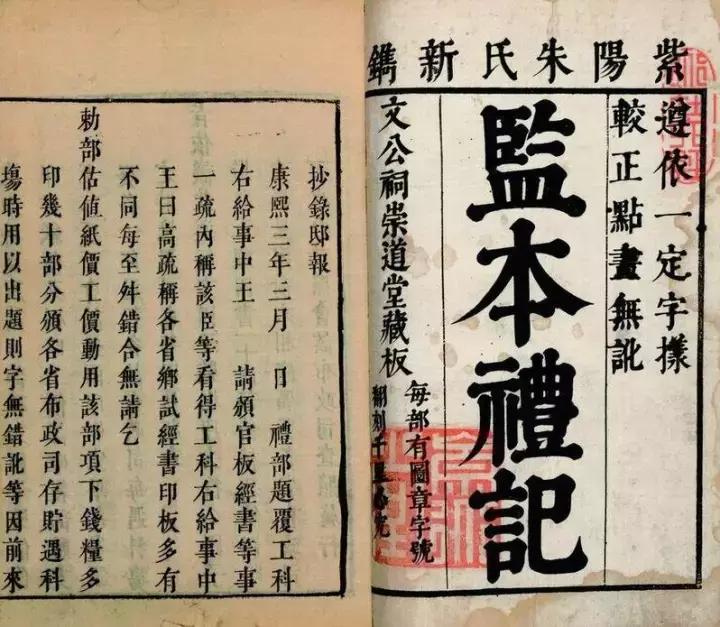 紫陽朱氏新鐫
遵依一定字樣
較正點畫無訛
監本禮記
文公祠崇道堂藏板
每部有圖章字號
翻刻千里必究
抄錄邸報
康熙三年三月 日 禮部題覆工科
右給事中王 請頒官板經書等事
一疏內稱該臣等看得工科右給事中
王曰高疏稱各省鄉試經書印板多有
不同每至舛錯合無請乞
勅部估值紙價工價動用該部項下錢糧多
印幾十部分頒各省布政司存貯遇科
塲時用以出題則字無錯訛等因前來